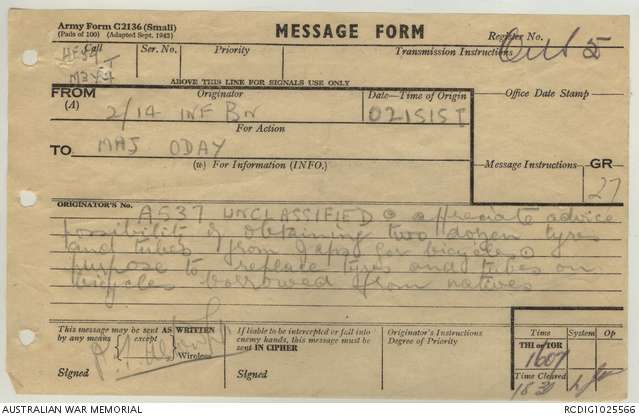 Army Form C2136 (Small)
(Pads of 100) (Adapted Sept. 1943)
MESSAGE FORM
Register No.
Call
Ser. No.
Priority
Transmission Instructions
5
ABOVE THIS LINE FOR SIGNALS USE ONLY
FROM
(A)
Originator
2/14 INF BN
Date-Time of Origin
021515 I
Office Date Stamp
For Action
TO
MAJ ODAY
(w) For Information (INFO.)
Message Instructions
GR
27
ORIGINATOR'S No.
A537 UNCLASSIFIED ⊙ appreciate advice
possibility of obtaining two dozen tyres
and tubes from Japs for bicycles ⊙
purpose to replace tyres and tubes on
bicycles borrowed from natives
This message may be sent AS WRITTEN
by any means except
Wireless
Signed
If liable to be intercepted or fall into
enemy hands, this message must be
sent IN CIPHER
Signed
Originator's Instructions
Degree of Priority
Time
System
Op
THI or TOR
1607
Time Cleared
1830
AUSTRALIAN WAR MEMORIAL
RCDIG1025566